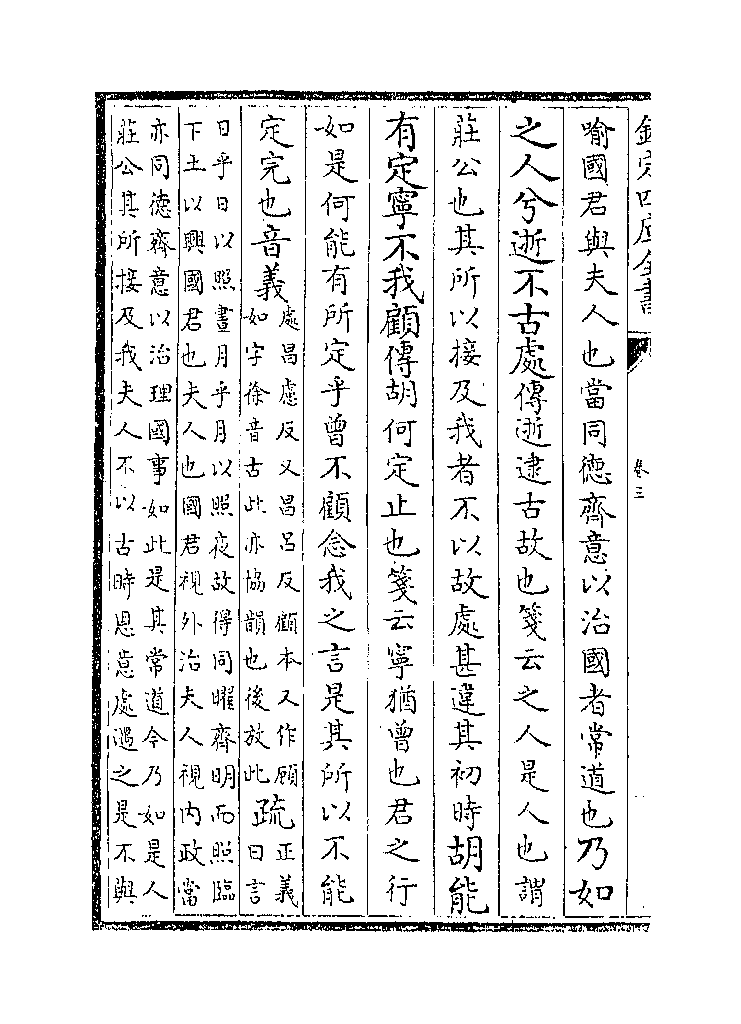 欽定四庫全書
卷三
喻國君與夫人也當同德齊意以治國者常道也乃如
之人兮逝不古處傳逝逮古故也箋云之人是人也謂
莊公也其所以接及我者不以故處甚違其初時胡能
有定寧不我顧傳胡何定止也箋云寧猶曾也君之行
如是何能有所定乎曾不顧念我之言是其所以不能
定完也音義
處昌慮反又昌呂反顧本又作頋
如字徐音古此亦協韻也後放此
疏
正義
曰言
日乎日以照晝月乎月以照夜故得同曜齊明而照臨
下土以興國君也夫人也國君視外治夫人視内政當
亦同德齊意以治理國事如此是其常道今乃如是人
莊公其所接及我夫人不以古時恩意處遇之是不與